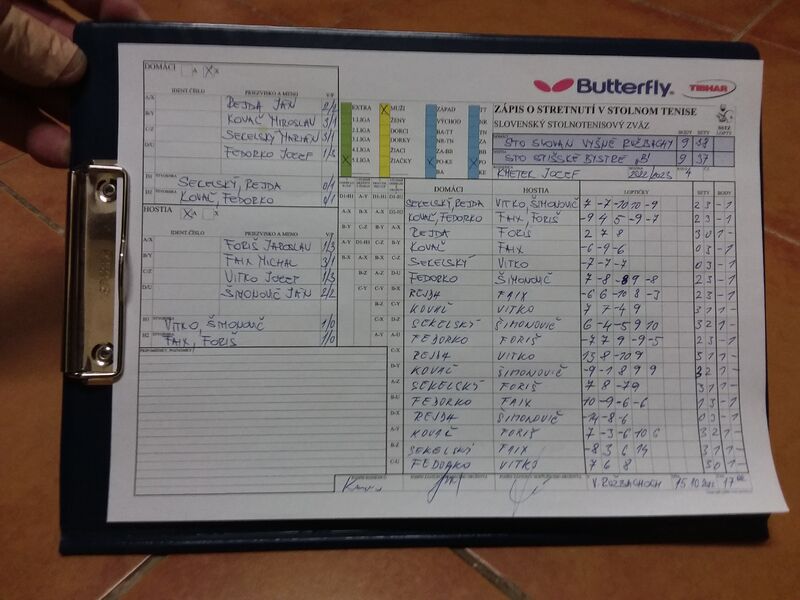 DOMÁCI A X
IDENT.ČÍSLO PRIEZVISKO A MENO V/P
A/X REJDA JÁN 2/2
B/Y KOVAČ MIROSLAV 3/1
C/Z SEKELSKÝ MARIÁN 3/1
D/U FEDORKO JOZEF 1/3
SEKELSKÝ, REJDA 0/1
KOVAČ, FEDORKO 0/1
HOSTIA A X
IDENT.ČÍSLO PRIEZVISKO A MENO V/P
A/X FORIŠ JAROSLAV 1/3
B/Y FAIX MICHAL 3/1
C/Z VITKO JOZEF 1/3
D/U ŠIMONOVIČ JÁN 2/2
H1 VITKO, ŠIMONOVIČ 1/0
H2 FAIX, FORIŠ 1/0
EXTRA
1.LIGA
2.LIGA
3.LIGA
4.LIGA
5.LIGA
MUŽI
ŽENY
DORCI
DORKY
ŽIACI
ŽIAČKY
ZÁPAD
VÝCHOD
BA-TT
NR-TN
ZA-BB
PO-KE
BA
TT
NR
TN
ZA
BB
PO
KE
Butterfly
TIBHAR
ZÁPIS O STRETNUTÍ V STOLNOM TENISE
SLOVENSKÝ STOLNOTENISOVÝ ZVÄZ BODY SETY
STO SLOVAN VYŠNÉ RUŽBACHY 9 38
9 37
KMETEK JOZEF 2022/2023 4
DOMÁCI HOSTIA LOPTIČKY SETY BODY
SEKELSKÝ, REJDA VITKO, ŠIMONOVIČ 7 -7 -10 10 -9 2 3 - 1
KOVAČ, FEDORKO FAIX, FORIŠ -9 4 5 -9 -7 2 3 - 1
REJDA FORIŠ 2 7 8 3 0 1 -
KOVAČ FAIX -6 -9 -6 0 3 - 1
SEKELSKÝ VITKO -7 -7 -7 0 3 - 1
FEDORKO ŠIMONOVIČ 7 -8 -8 9 -8 2 3 - 1
REJDA FAIX -6 6 -10 8 -3 2 3 - 1
KOVAČ VITKO 7 7 -4 9 3 1 1 -
SEKELSKÝ ŠIMONOVIČ 6 -4 -5 9 10 3 2 1 -
FEDORKO FORIŠ -7 7 9 -9 -5 2 3 - 1
REJDA VITKO 13 8 -10 9 3 1 1 -
KOVAČ ŠIMONOVIČ -9 -1 8 9 9 3 2 1 -
SEKELSKÝ FORIŠ 7 8 -7 9 3 1 1 -
FEDORKO FAIX 10 -9 -6 -6 1 3 - 1
REJDA ŠIMONOVIČ -14 -8 -6 0 3 - 1
KOVAČ FORIŠ 7 -3 -6 10 6 3 2 1 -
SEKELSKÝ FAIX -8 3 6 14 3 1 1 -
FEDORKO VITKO 7 6 8 3 0 1 -
V. RUŽBACHOCH 15.10.2022 17